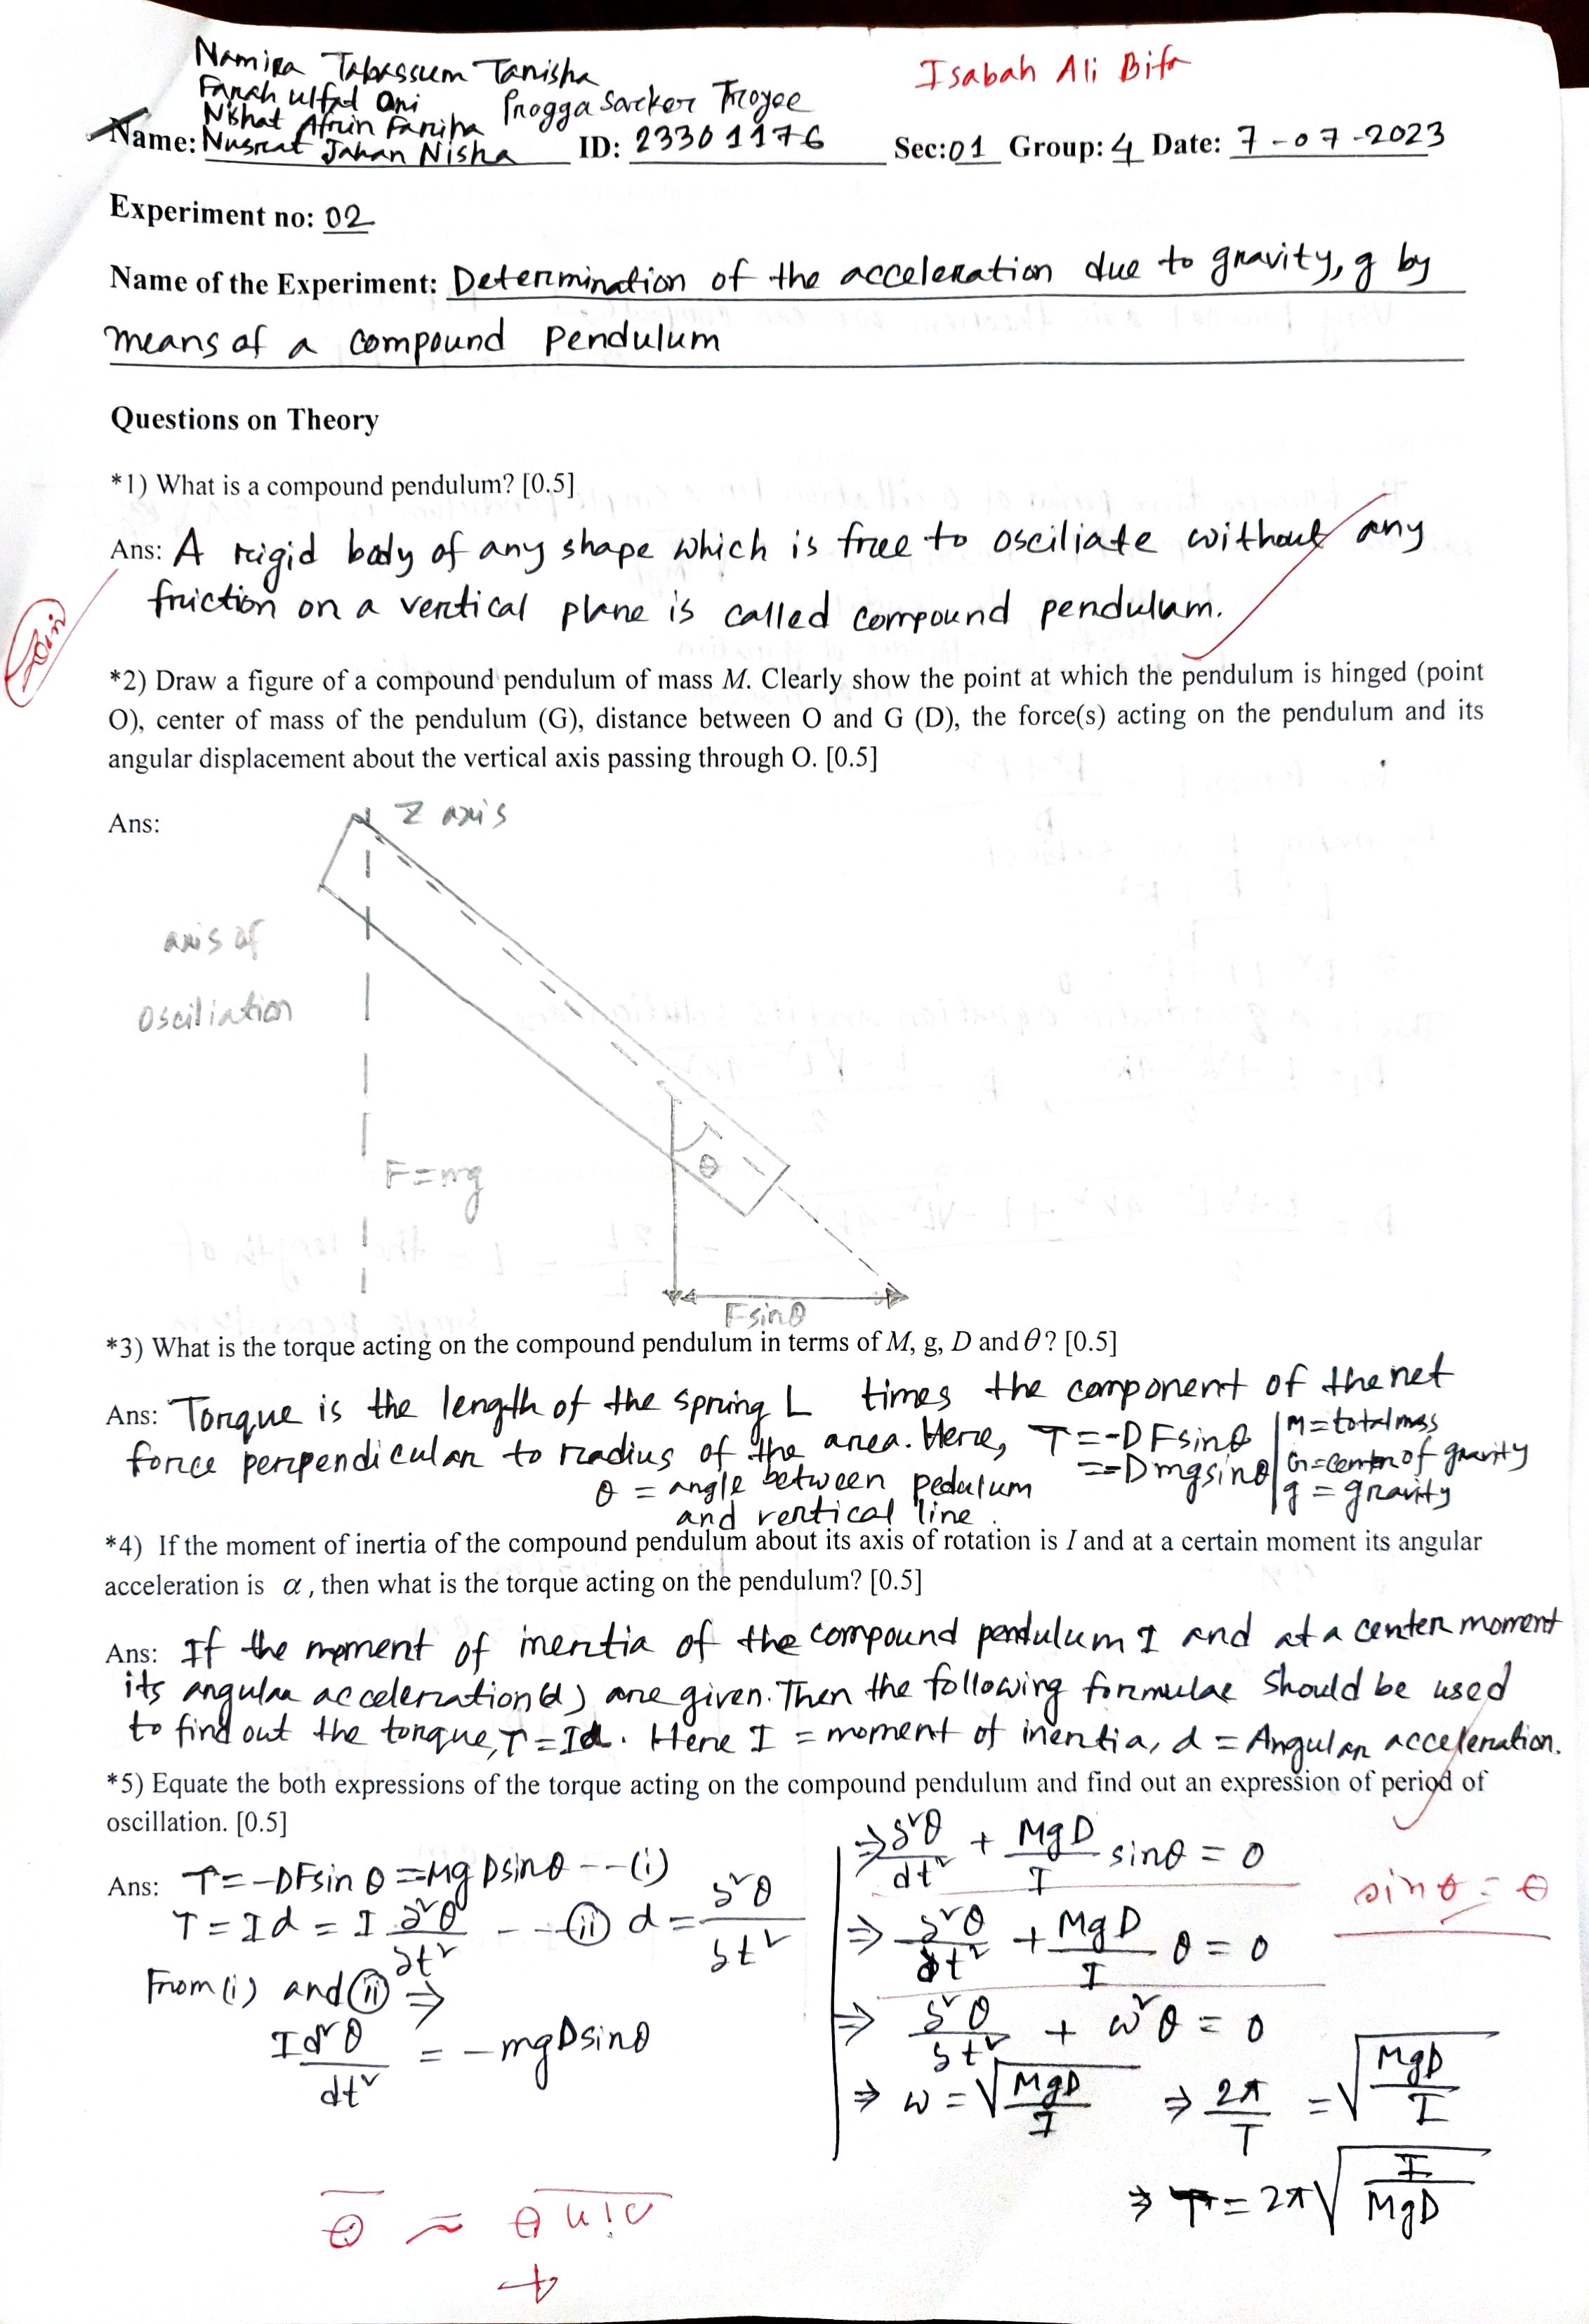 Namira Tabassum Tanisha
Isabah Ali Bifa
Farah ulfat Oni
Progga Sarker Troyee
Nishat Afrin Fariha
Name: Nusrat Jahan Nisha ID: 23301176 Sec:01 Group: 4 Date: 7-07-2023
Experiment no: 02
Name of the Experiment: Determination of the acceleration due to gravity, g by
means of a compound Pendulum
Questions on Theory
*1) What is a compound pendulum? [0.5]
Ans: A rigid body of any shape which is free to osciliate without any
friction on a vertical plane is called compound pendulum.
*2) Draw a figure of a compound pendulum of mass M. Clearly show the point at which the pendulum is hinged (point
O), center of mass of the pendulum (G), distance between O and G (D), the force(s) acting on the pendulum and its
angular displacement about the vertical axis passing through O. [0.5]
Ans:
Z axis
axis of
osciliation
F=mg
θ
Fsinθ
*3) What is the torque acting on the compound pendulum in terms of M, g, D and θ? [0.5]
Ans: Torque is the length of the spring L times the component of the net
force perpendicular to radius of the area. Here, T=-DFsinθ
=-Dmgsinθ
M=total mass
G=center of gravity
g = gravity
θ = angle between pedulum
and vertical line.
*4) If the moment of inertia of the compound pendulum about its axis of rotation is I and at a certain moment its angular
acceleration is α, then what is the torque acting on the pendulum? [0.5]
Ans: If the moment of inertia of the compound pendulum I and at a center moment
its angular acceleration(d) are given. Then the following formulae should be used
to find out the torque, T=Id. Here I = moment of inertia, d = Angular acceleration.
*5) Equate the both expressions of the torque acting on the compound pendulum and find out an expression of period of
oscillation. [0.5]
Ans: T=-DFsinθ=-MgDsinθ --(i)
T=Id = I δ²θ/δt² --(ii) d = δ²θ/δt²
From (i) and (ii) ⇒
Id²θ/dt² = -mgDsinθ
⇒ δ²θ/dt² + MgD/I sinθ = 0
sinθ = θ
⇒ δ²θ/dt² + MgD/I θ = 0
⇒ δ²θ/δt² + ω²θ = 0
⇒ ω = √MgD/I ⇒ 2π/T = √MgD/I
⇒ T = 2π√I/MgD